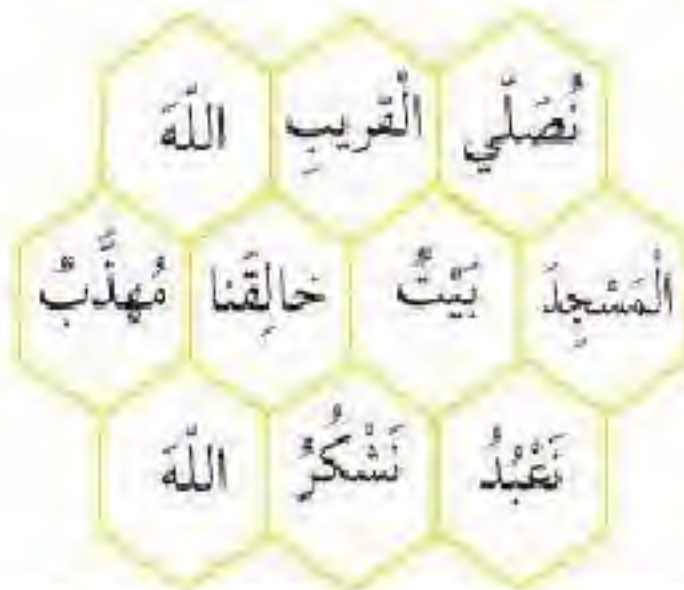 نُصَلّي الْقَريبِ اللّهَ
الْمَسْجِدَ بَيْتٌ خالِقَنا مُهَذَّبٌ
نَعْبُدُ نَشْكُرُ اللّهَ